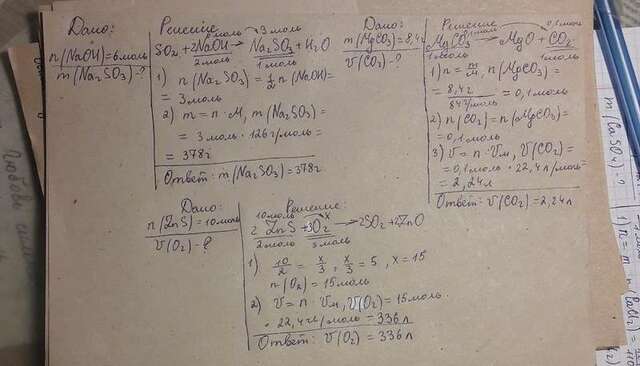 Дано:
n(NaOH)=6моль
m(Na₂SO₃)-?
Решение
6моль 3моль
SO₂+2NaOH→Na₂SO₃+H₂O
2моль 1моль
1) n(Na₂SO₃)=½n(NaOH)=
= 3моль
2) m=n·M, m(Na₂SO₃)=
= 3моль·126г/моль=
= 378г
Ответ: m(Na₂SO₃)=378г
Дано:
m(MgCO₃)=8,4г
V(CO₂)-?
Решение
0,1моль
MgCO₃→MgO+CO₂
1моль 1моль
1) n=m/M, n(MgCO₃)=
= 8,4г/84г/моль = 0,1моль
2) n(CO₂)=n(MgCO₃)=
=0,1моль
3) V=n·Vм, V(CO₂)=
=0,1моль·22,4л/моль=
= 2,24л
Ответ: V(CO₂)=2,24л
Дано:
n(ZnS)=10моль
V(O₂)-?
Решение:
10моль x
2ZnS+3O₂→2SO₂+2ZnO
2моль 3моль
1) 10/2 = x/3, x/3 = 5, x=15
n(O₂)=15моль
2) V=n·Vм, V(O₂)=15моль·
· 22,4л/моль=336л
Ответ: V(O₂)=336л
m(CaSO₄)-?